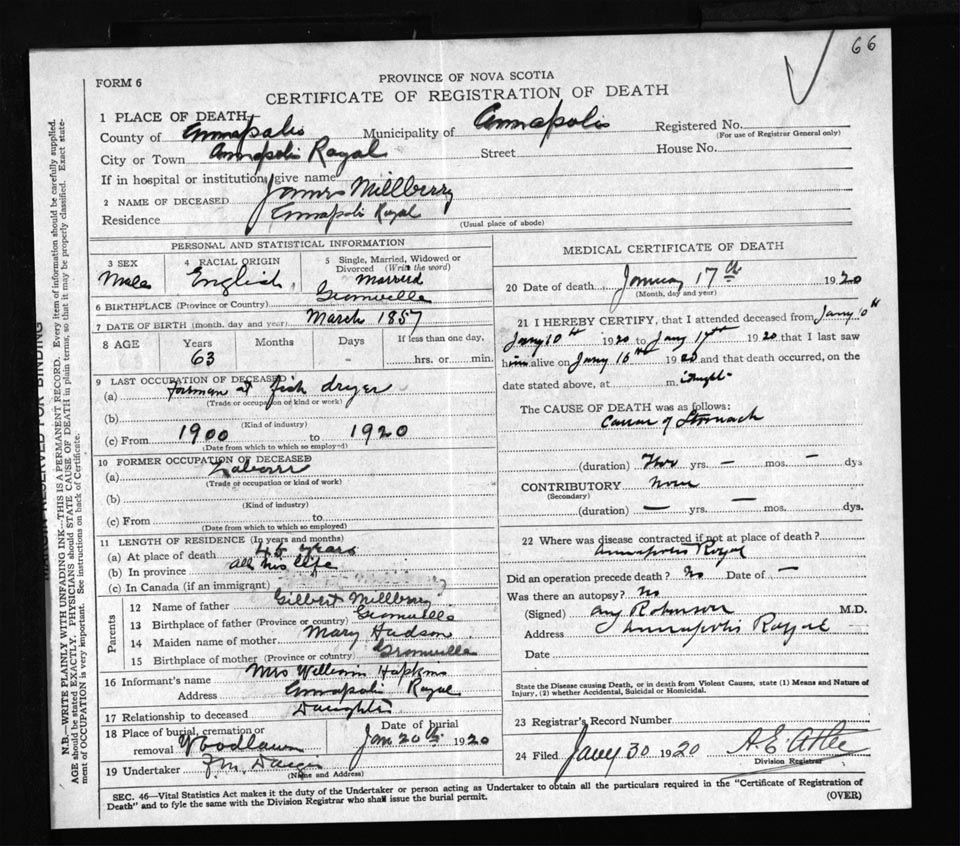 66
FORM 6
PROVINCE OF NOVA SCOTIA
CERTIFICATE OF REGISTRATION OF DEATH
1 PLACE OF DEATH
County of Annapolis Municipality of Annapolis Registered No.
(For use of Registrar General only)
City or Town Annapolis Royal Street House No.
If in hospital or institution, give name
2 NAME OF DECEASED James Millberry
Residence Annapolis Royal
(Usual place of abode)
PERSONAL AND STATISTICAL INFORMATION
3 SEX Male
4 RACIAL ORIGIN English
5 Single, Married, Widowed or Divorced (Write the word) Married
6 BIRTHPLACE (Province or Country) Granville
7 DATE OF BIRTH (month, day and year) March 1857
8 AGE Years 63 Months Days - If less than one day, hrs. or min.
9 LAST OCCUPATION OF DECEASED
(a) foreman at fish dryer
(Trade or occupation or kind or work)
(b)
(Kind of industry)
(c) From 1900 to 1920
(Date from which to which so employed)
10 FORMER OCCUPATION OF DECEASED
(a) Laborer
(Trade or occupation or kind of work)
(b)
(Kind of industry)
(c) From to
(Date from which to which so employed)
11 LENGTH OF RESIDENCE (In years and months)
(a) At place of death 45 years
(b) In province all his life
(c) In Canada (if an immigrant)
Parents
12 Name of father Gilbert Millberry
13 Birthplace of father (Province or country) Granville
14 Maiden name of mother Mary Hudson
15 Birthplace of mother (Province or country) Granville
16 Informant's name Mrs William Hapkins
Address Annapolis Royal
17 Relationship to deceased Daughter
18 Place of burial, cremation or removal Woodlawn
Date of burial Jan 20th 1920
19 Undertaker F.M.
(Name and Address)
MEDICAL CERTIFICATE OF DEATH
20 Date of death January 17th 1920
(Month, day and year)
21 I HEREBY CERTIFY, that I attended deceased from Jany 10th
Jany 10th 1920 to Jany 17th 1920 that I last saw
him alive on Jany 16th 1920 and that death occurred, on the
date stated above, at m.
The CAUSE OF DEATH was as follows:
Cancer of Stomach
(duration) Two yrs. — mos. — dys
CONTRIBUTORY None
(Secondary)
(duration) — yrs. — mos. dys.
22 Where was disease contracted if not at place of death?
Annapolis Royal
Did an operation precede death? No Date of —
Was there an autopsy? No
(Signed) Robinson M.D.
Address Annapolis Royal
Date
State the Disease causing Death, or in death from Violent Causes, state (1) Means and Nature of
Injury, (2) whether Accidental, Suicidal or Homicidal.
23 Registrar's Record Number
24 Filed Jany 30 1920 A.E. Atlee
Division Registrar
SEC. 46—Vital Statistics Act makes it the duty of the Undertaker or person acting as Undertaker to obtain all the particulars required in the "Certificate of Registration of
Death" and to fyle the same with the Division Registrar who shall issue the burial permit. (OVER)
RESERVED FOR BINDING
N.B.—WRITE PLAINLY WITH UNFADING INK—THIS IS A PERMANENT RECORD. Every item of information should be carefully supplied.
AGE should be stated EXACTLY. PHYSICIANS should STATE CAUSE OF DEATH in plain terms, so that it may be properly classified. Exact state-
ment of OCCUPATION is very important. See instructions on back of Certificate.